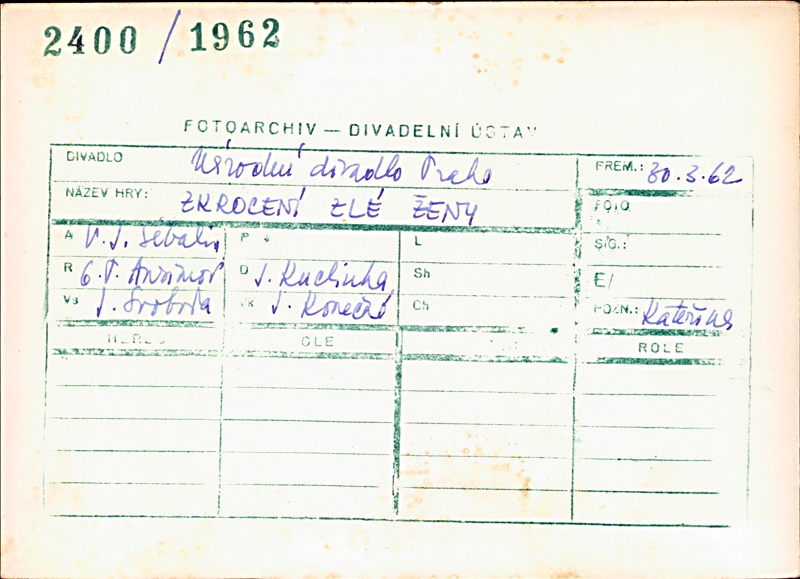 2400/1962
FOTOARCHIV — DIVADELNÍ ÚSTAV
DIVADLO Národní divadlo Praha PREM.: 30.3.62
NÁZEV HRY: ZKROCENÍ ZLÉ ŽENY FOTO
A V. J. Šebalin P L SIG.:
R G. P. Ansimov D J. Kuchinka, Sh E/
Vs J. Svoboda Vk J. Konečná Ch POZN.: Kateřina
HEREC ROLE ROLE